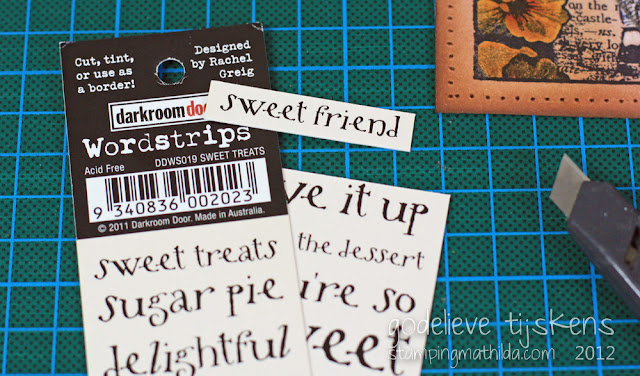 Cut, tint,
or use as
a border!
Designed
by Rachel
Greig
darkroom doo
Wordstrips
Acid Free
DDWS019 SWEET TREATS
9 340836 002023
© 2011 Darkroom Door. Made in Australia.
sweet treats
sugar pie
delightful
sweet friend
ve it up
the dessert
're so
weet
on the
ecastle-
—ns.
godelieve tijskens
stampingmathilda.com 2012